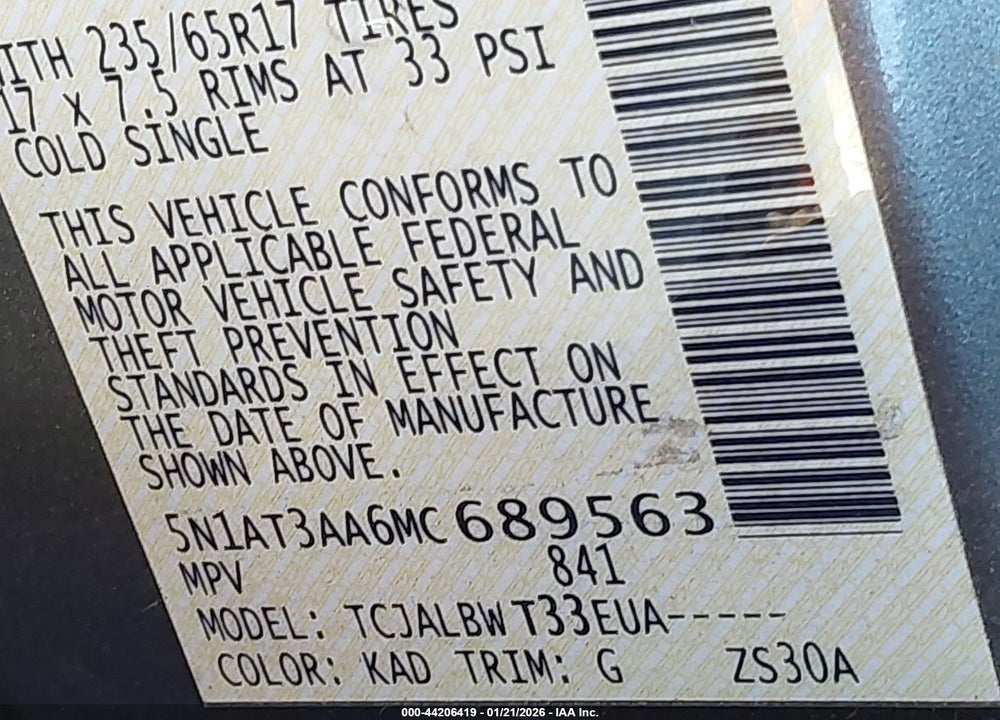 WITH 235/65R17 TIRES
17 X 7.5 RIMS AT 33 PSI
COLD SINGLE
THIS VEHICLE CONFORMS TO
ALL APPLICABLE FEDERAL
MOTOR VEHICLE SAFETY AND
THEFT PREVENTION
STANDARDS IN EFFECT ON
THE DATE OF MANUFACTURE
SHOWN ABOVE.
5N1AT3AA6MC 689563
MPV 841
MODEL: TCJALBWT33EUA-----
COLOR: KAD TRIM: G ZS30A
000-44206419 - 01/21/2026 - IAA Inc.